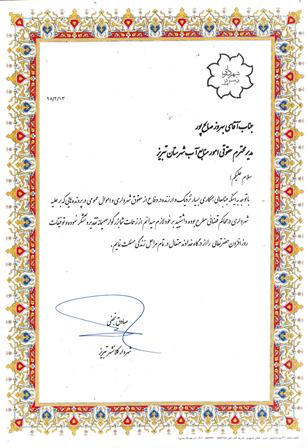 شهرداری تبریز
۹۰/۲/۱۳
جناب آقای بهروز صالح پور
مدیر محترم حقوقی امور منابع آب شهرستان تبریز
سلام علیکم؛
با توجه به اینکه جنابعالی همکاری بسیار نزدیک و ارزنده در دفاع از حقوق شهرداری و اموال عمومی و پرونده هایی که بر علیه
شهرداری در محاکم قضائی مطرح بوده داشته اید بر خود لازم میدانم از زحمات شما بزرگوار صمیمانه تقدیر و تشکر نموده و توفیقات
روز افزون حضرتعالی را از درگاه خداوند متعال در تمام مراحل زندگی مسئلت نمایم.
صادق نجفی
شهردار کلانشهر تبریز